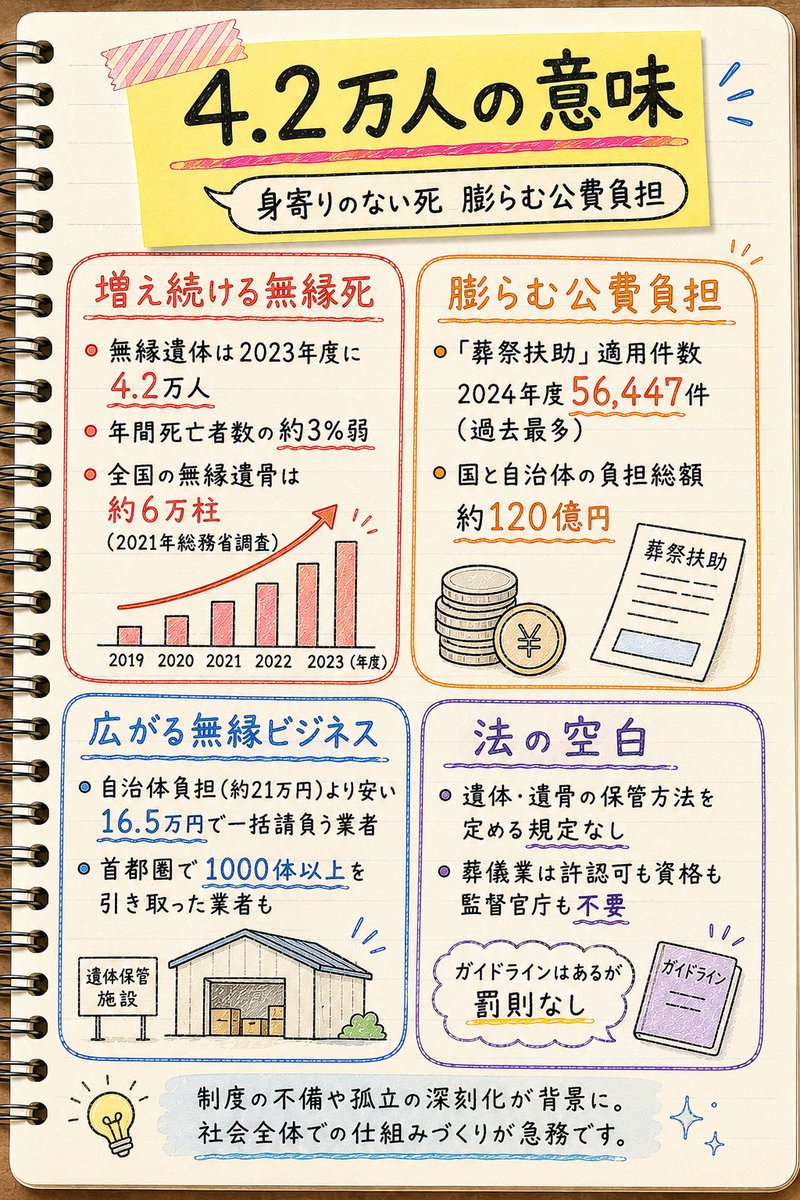 4.2万人の意味
身寄りのない死 膨らむ公費負担
増え続ける無縁死
無縁遺体は2023年度に
4.2万人
年間死亡者数の約3%弱
全国の無縁遺骨は
約6万柱
(2021年総務省調査)
2019 2020 2021 2022 2023(年度)
膨らむ公費負担
「葬祭扶助」適用件数
2024年度 56,447件
(過去最多)
国と自治体の負担総額
約120億円
葬祭扶助
¥
広がる無縁ビジネス
自治体負担(約21万円)より安い
16.5万円で一括請負う業者
首都圏で1000体以上を
引き取った業者も
遺体保管
施設
法の空白
遺体・遺骨の保管方法を
定める規定なし
葬儀業は許認可も資格も
監督官庁も不要
ガイドラインはあるが
罰則なし
ガイドライン
制度の不備や孤立の深刻化が背景に。
社会全体での仕組みづくりが急務です。